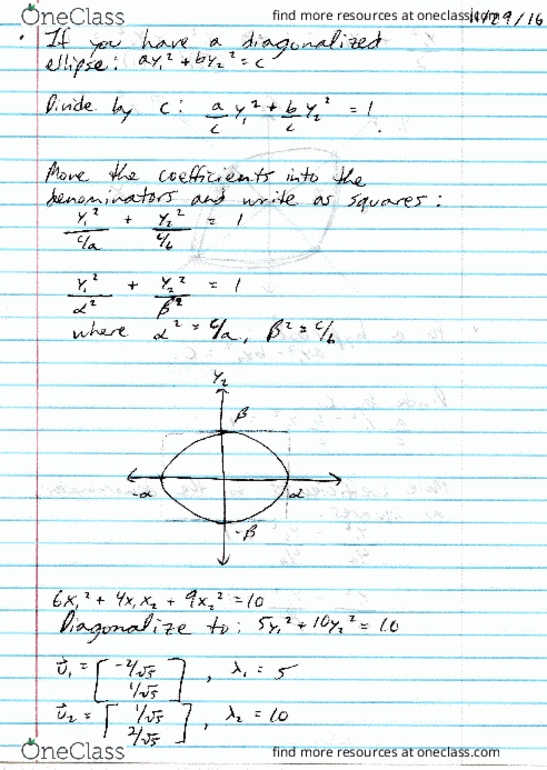 OneClass
find more resources at oneclass.com
11/29/16
• If you have a diagonalized
ellipse: ay₁² + by₂² = c
Divide by c: a/c y₁² + b/c y₂² = 1
Move the coefficients into the
denominators and write as squares:
y₁²/(c/a) + y₂²/(c/b) = 1
y₁²/α² + y₂²/β² = 1
where α² = c/a, β² = c/b
y₂
β
-α
α
-β
6x₁² + 4x₁x₂ + 9x₂² = 10
Diagonalize to: 5y₁² + 10y₂² = 10
u⃗₁ = [-2/√5
1/√5], λ₁ = 5
u⃗₂ = [1/√5
2/√5], λ₂ = 10
OneClass
find more resources at oneclass.com